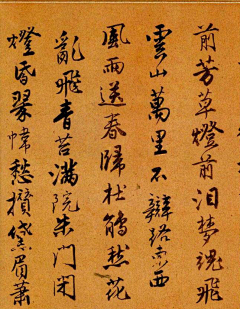 前芳草燈前泪夢魂飛
雲山萬里不辯路東西
風雨送春歸杜鵑愁花
亂飛青苔滿院朱門閉
燈昏翠幃愁攢黛眉蕭